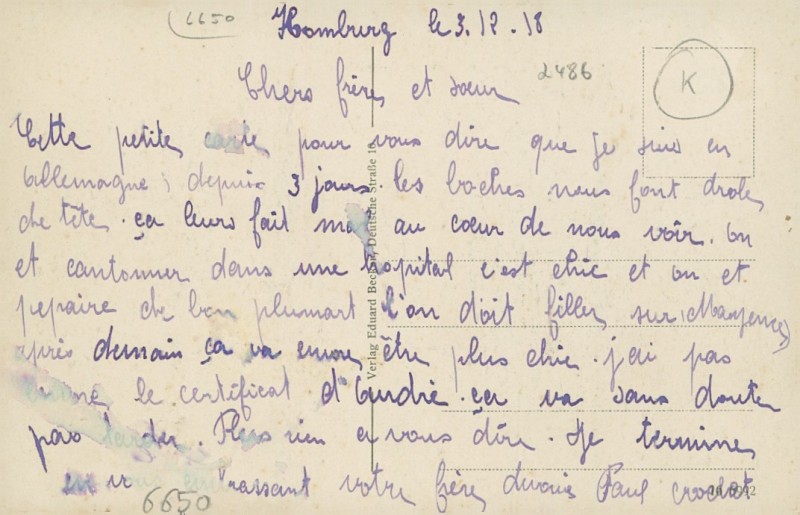 6650
Homburg le 3.12.18
2486
K
Chers frères et sœur
Cette petite carte pour vous dire que je suis en
Allemagne; depuis 3 jours. les boches nous font drole
de tête. ça leurs fait mal au cœur de nous voir. on
et cantonner dans une hopital c'est chic et on et
pepaire de bon plumart l'on doit filler sur (Mayence)
après demain ça va encore être plus chic. j'ai pas
le certificat d'André. ça va sans doute
pas tarder. Plus rien a vous dire. Je termine
en vous embrassant votre frère Paul
6650
Verlag Eduard Deutsche Straße 10